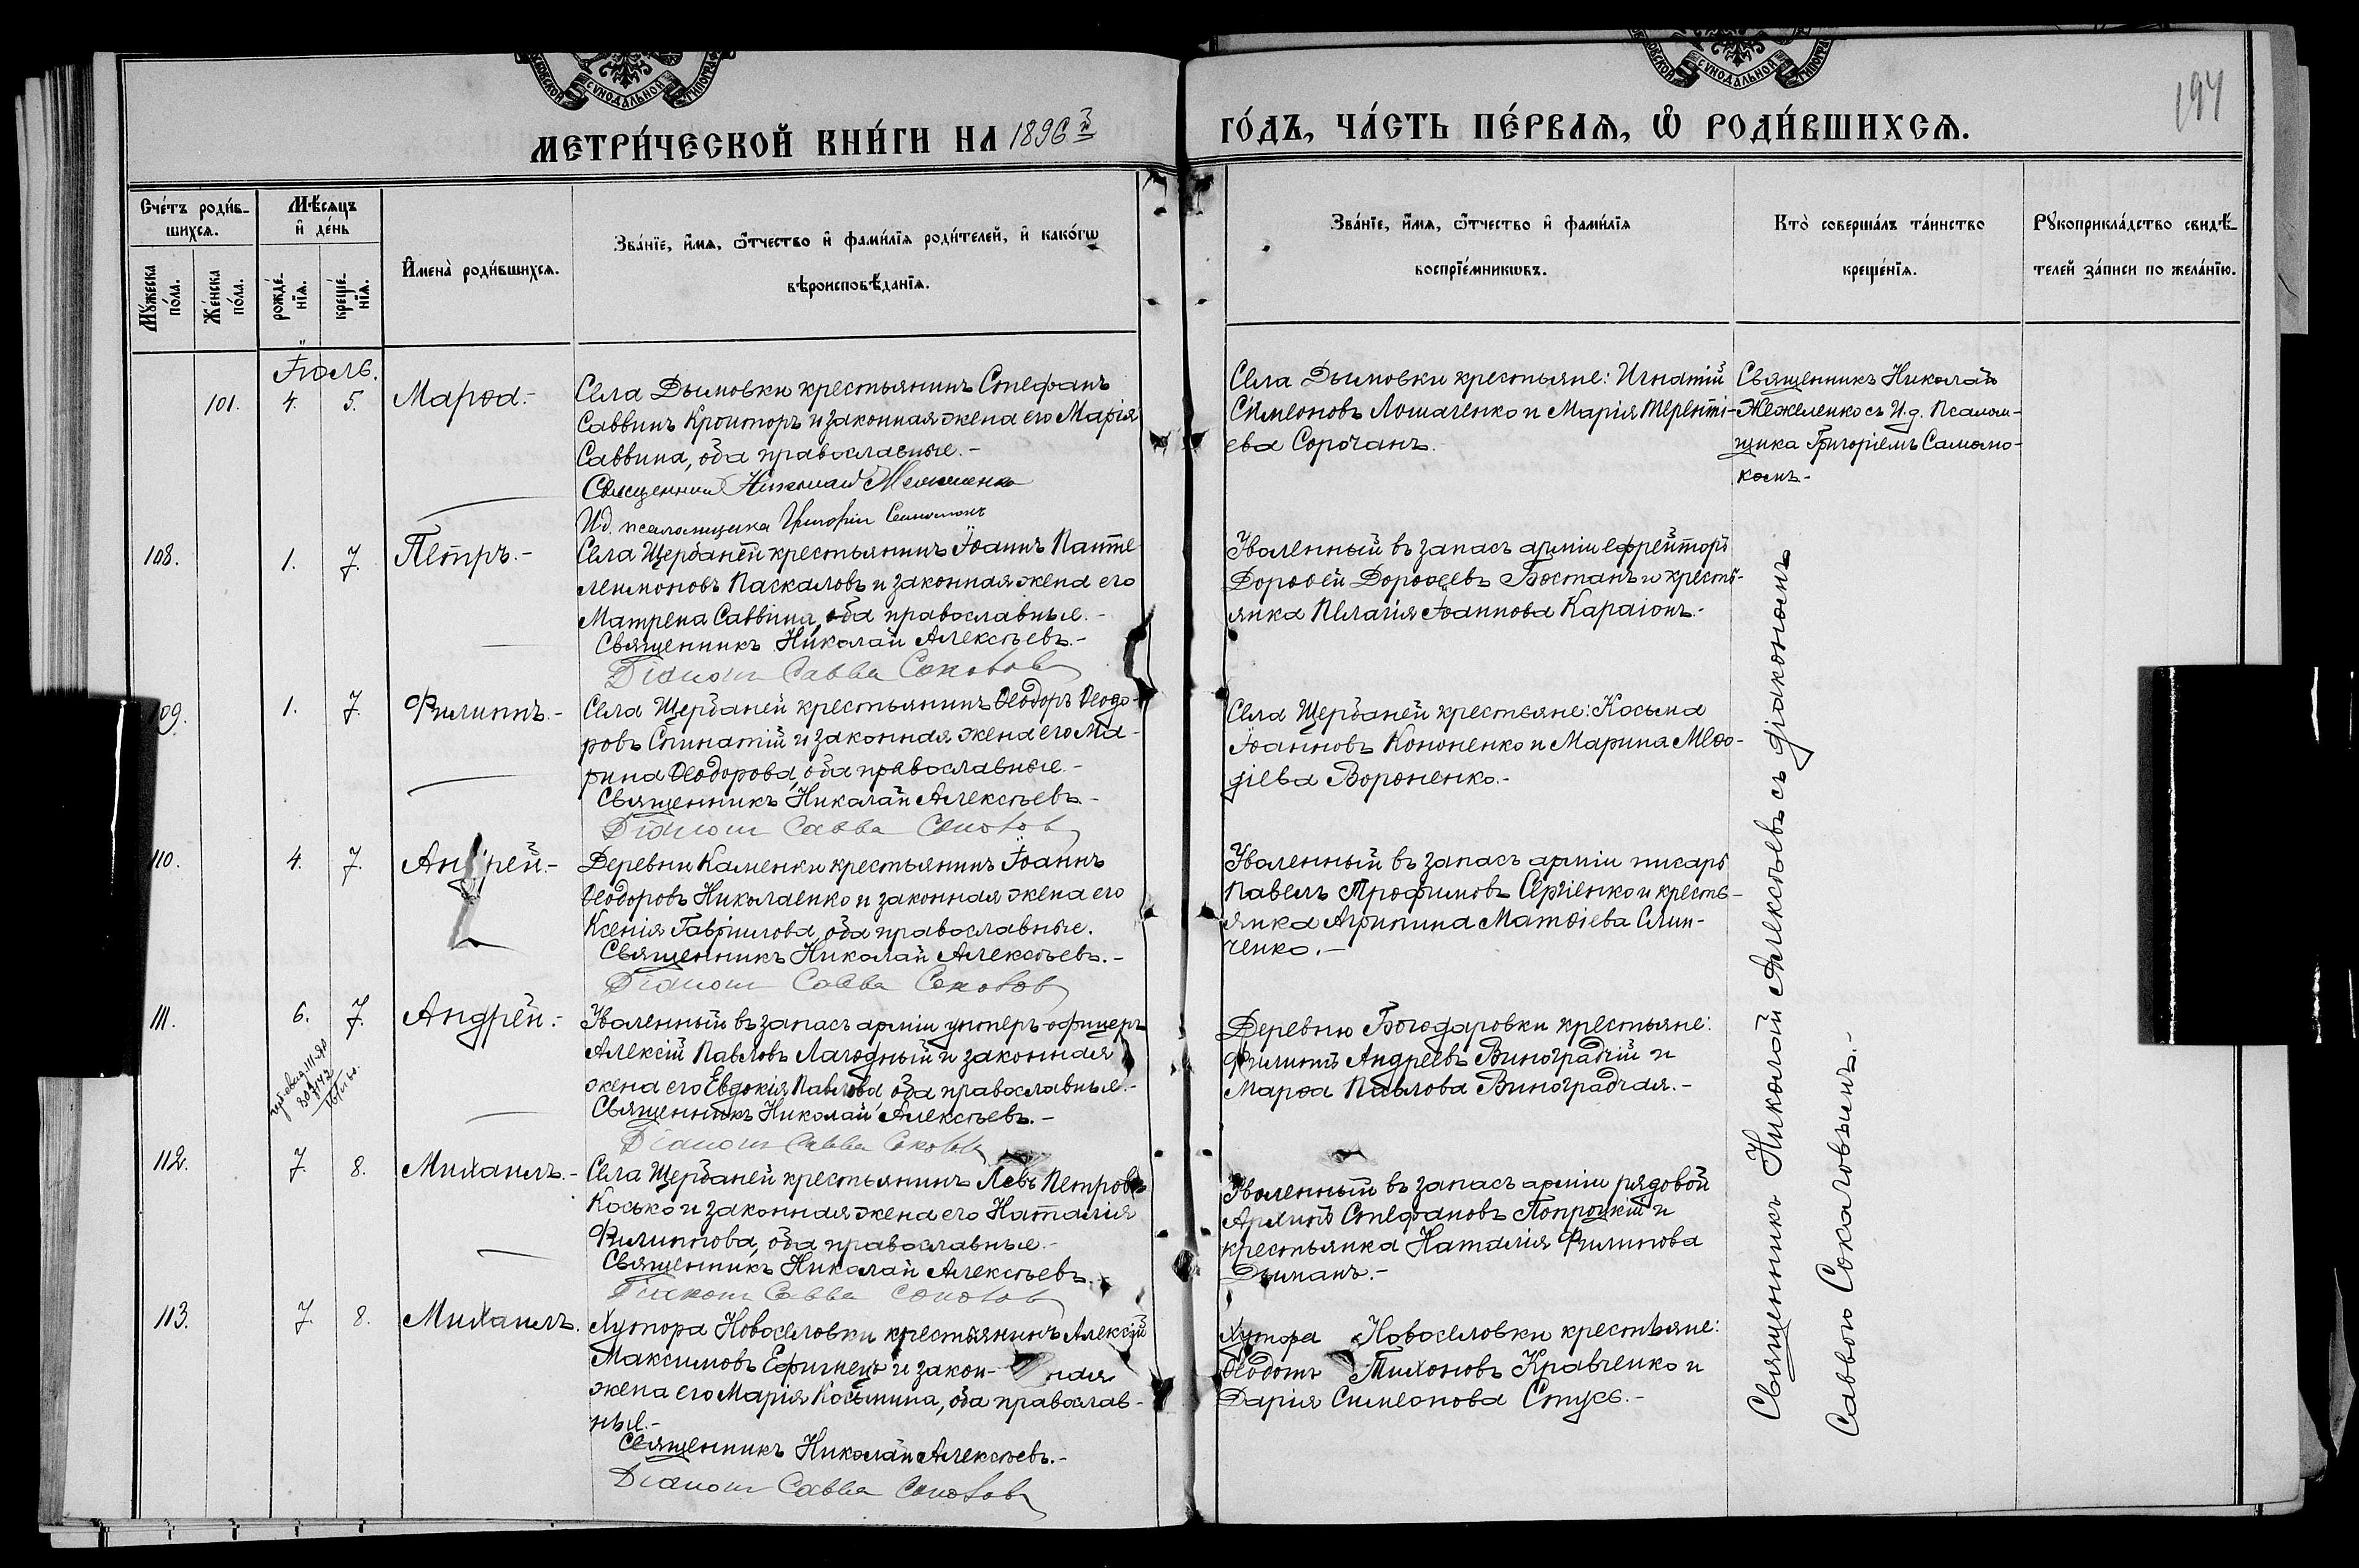 МЕТРИ́ЧЕСКОЙ КНИ́ГИ НА 1896 й
ГО́ДЪ, ЧА́СТЬ ПЕ́РВАѦ, Ѡ РОДИ́ВШИХСѦ.
194
Сче́тъ роди́в-
шихсѧ.
Мꙋ́жеска по́ла.
Же́нска по́ла.
Мѣ́сѧцъ
и де́нь
рожде́нїѧ.
креще́нїѧ.
Имена̀ роди́вшихсѧ.
Зва́нїе, и́мѧ, ѻ́тчество и фами́лїѧ роди́телей, и како́гѡ
вѣроисповѣ́данїѧ.
Зва́нїе, и́мѧ, ѻ́тчество и фами́лїѧ
воспрїе́мникѡвъ.
Кто̀ соверша́лъ та́инство
креще́нїѧ.
Рꙋкоприкла́дство свидѣ́-
телей за́писи по жела́нїю.
Іюль.
101. 4. 5. Марѳа.-
Села Дымовки крестьянинъ Стефанъ
Саввинъ Кроиторъ и законная жена его Марія
Саввина, оба православные.-
Священникъ Николай Межеленко
И.д. псаломщика Григорій Самонокъ
Села Дымовки крестьяне: Игнатій
Симеоновъ Лошаченко и Марія Теренті-
ева Сорочанъ.
Священникъ Николай
Межеленко съ И.д. псалом-
щика Григоріемъ Самоно-
комъ.-
108. 1. 7. Петръ.-
Села Щербаней крестьянинъ Іоаннъ Панте-
леимоновъ Паскаловъ и законная жена его
Матрена Саввина, оба православные.-
Священникъ Николай Алексѣевъ.-
Діаконъ Савва Соколов
Уволенный въ запасъ арміи ефрейторъ
Дороѳей Дороѳеевъ Бостанъ и кресть-
янка Пелагія Іоаннова Караіонъ.-
109. 1. 7. Филиппъ.-
Села Щербаней крестьянинъ Ѳеодоръ Ѳеодо-
ровъ Спинатій и законная жена его Ма-
рина Ѳеодорова, оба православные.-
Священникъ Николай Алексѣевъ.-
Діаконъ Савва Соколов
Села Щербаней крестьяне: Косьма
Іоанновъ Кононенко и Марина Меѳо-
діева Вороненко.-
110. 4. 7. Андрей.-
Деревни Каменки крестьянинъ Іоаннъ
Ѳеодоровъ Николаенко и законная жена его
Ксенія Гавріилова, оба православные.
Священникъ Николай Алексѣевъ.-
Діаконъ Савва Соколов
Уволенный въ запасъ арміи писарь
Павелъ Трофимовъ Сергіенко и кресть-
янка Агрипина Матѳіева Слин-
ченко.-
111. 6. 7. Андрей.-
Уволенный въ запасъ арміи унтеръ-офицеръ
Алексій Павловъ Лагодный и законная
жена его Евдокія Павлова, оба православные.-
Священникъ Николай Алексѣевъ.-
Діаконъ Савва Соколов
Деревни Богодаровки крестьяне:
Филиппъ Андреевъ Виноградчій и
Марѳа Павлова Виноградчая.-
112. 7. 8. Михаилъ.-
Села Щербаней крестьянинъ Левъ Петровъ
Косько и законная жена его Наталія
Филиппова, оба православные.-
Священникъ Николай Алексѣевъ.-
Діаконъ Савва Соколов
Уволенный въ запасъ арміи рядовой
Архипъ Стефановъ Попроцкій и
крестьянка Наталія Филипова
Думанъ.-
113. 7. 8. Михаилъ.
Хутора Новоселовки крестьянинъ Алексій
Максимовъ Ефимецъ и закон- ная
жена его Марія Косьмина, оба православ-
ные.-
Священникъ Николай Алексѣевъ.-
Діаконъ Савва Соколов
Хутора Новоселовки крестьяне:
Ѳеодотъ Тихоновъ Кравченко и
Дарія Симеонова Стусь.-
Священникъ Николай Алексѣевъ съ діакономъ
Саввою Сокаловымъ.-